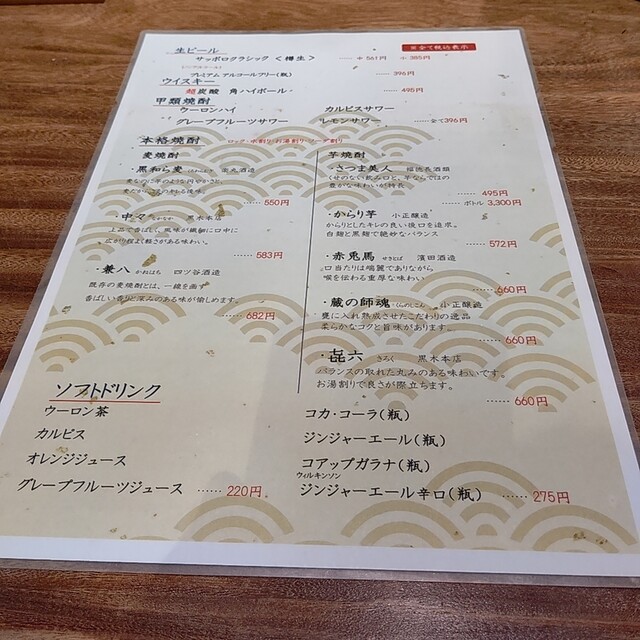 生ビール
※全て税込表示
サッポロクラシック〈樽生〉 大 561円 小 385円
プレミアム アルコールフリー(瓶) 396円
ウイスキー
超炭酸 角ハイボール 495円
甲類焼酎
ウーロンハイ カルピスサワー
グレープフルーツサワー レモンサワー ……全て396円
本格焼酎 ロック・水割り・お湯割り・ソーダ割り
麦焼酎
・黒和ら麦
550円
・中々 なかなか 黒木本店
上品で香ばしく、風味が繊細に口中に
広がり程よく軽さがある味わい。
583円
・兼八 かねはち 四ツ谷酒造
既存の麦焼酎とは、一線を画す
香ばしい香りと深みのある味が愉しめます。
682円
芋焼酎
・さつま美人 福徳長酒類
くせのない飲み口と、芋ならではの
豊かな味わいが特長
495円
ボトル 3,300円
・からり芋 小正醸造
からりとしたキレの良い後口を追求。
白麹と黒麹で絶妙なバランス
572円
・赤兎馬 せきとば 濵田酒造
口当たりは端麗でありながら
喉を伝わる重厚な味わい
660円
・蔵の師魂 くらのしこん 小正醸造
甕に入れ熟成させたこだわりの逸品
柔らかなコクと旨味があります。
660円
・㐂六 きろく 黒木本店
バランスの取れた丸みのある味わいです。
お湯割りで良さが際立ちます。
660円
ソフトドリンク
ウーロン茶
カルピス
オレンジジュース
グレープフルーツジュース ……220円
コカ・コーラ(瓶)
ジンジャーエール(瓶)
コアップガラナ(瓶)
ウィルキンソン
ジンジャーエール辛口(瓶) ……275円